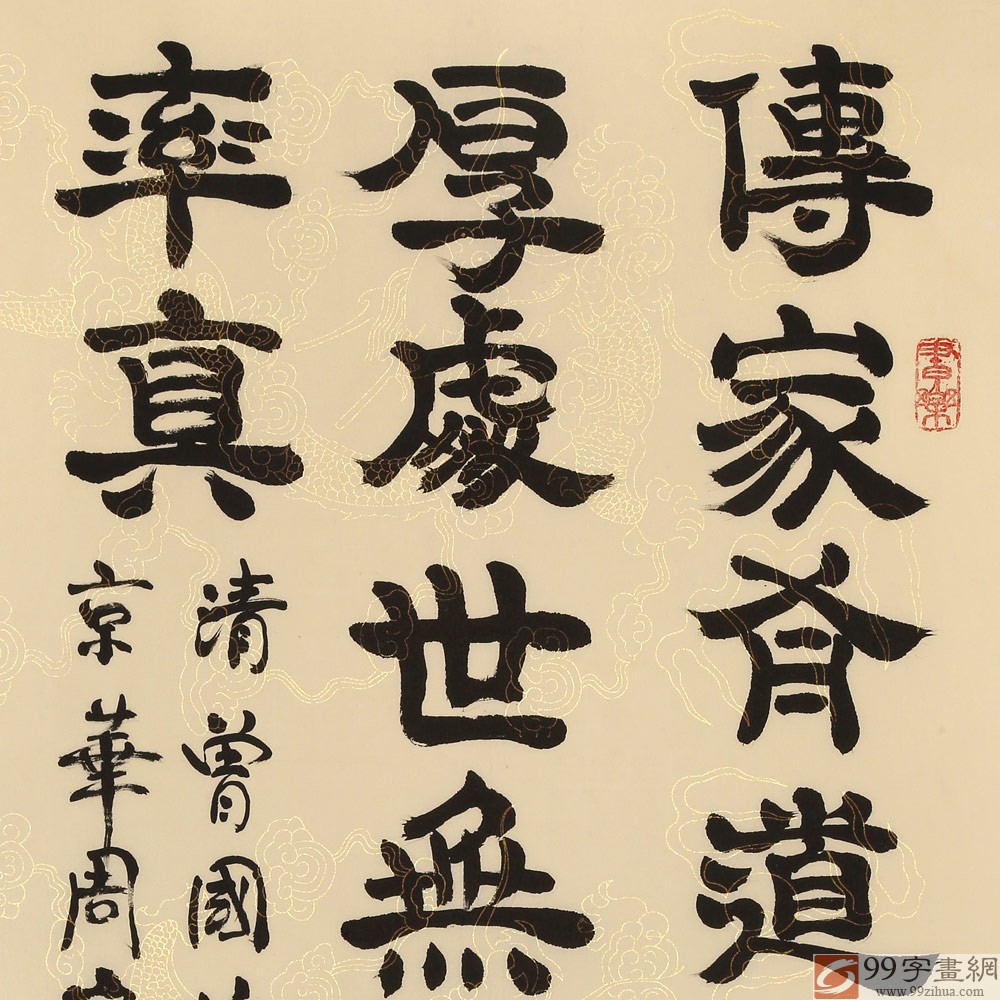 傳家有道
厚處世無
率真
清曾國
京華周
99字畫網
www.99zihua.com